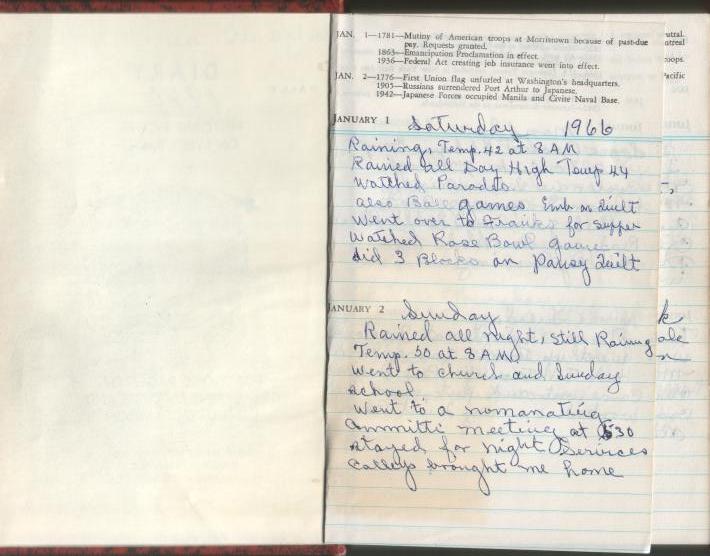 JAN. 1—1781—Mutiny of American troops at Morristown because of past-due
pay. Requests granted.
1863—Emancipation Proclamation in effect.
1936—Federal Act creating job insurance went into effect.
JAN. 2—1776—First Union flag unfurled at Washington's headquarters.
1905—Russians surrendered Port Arthur to Japanese.
1942—Japanese Forces occupied Manila and Cavite Naval Base.
JANUARY 1 Saturday 1966
Raining, Temp. 42 at 8 AM
Rained all Day High Temp 44
Watched Parades.
also games Emb on Quilt
Went over to Franks for supper
Watched Rose Bowl game
did 3 Blocks on Pansy Quilt
JANUARY 2 Sunday
Rained all night, still Raining
Temp. 50 at 8 AM
Went to church and Sunday
school.
Went to a nomanating
Committi meeting at 530
stayed for night Services
brought me home